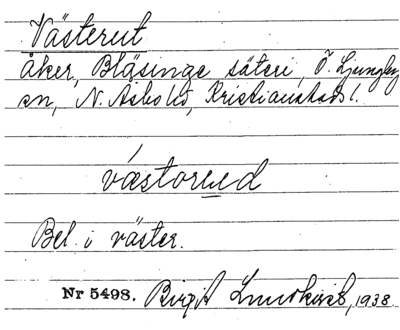 Västerut
åker, Bläsinge säteri, Ö. Ljungby
sn, N. Åsbo hd, Kristianstads l.
västorud
Bel. i väster.
Nr 5498. Birgit Lundkvist, 1938